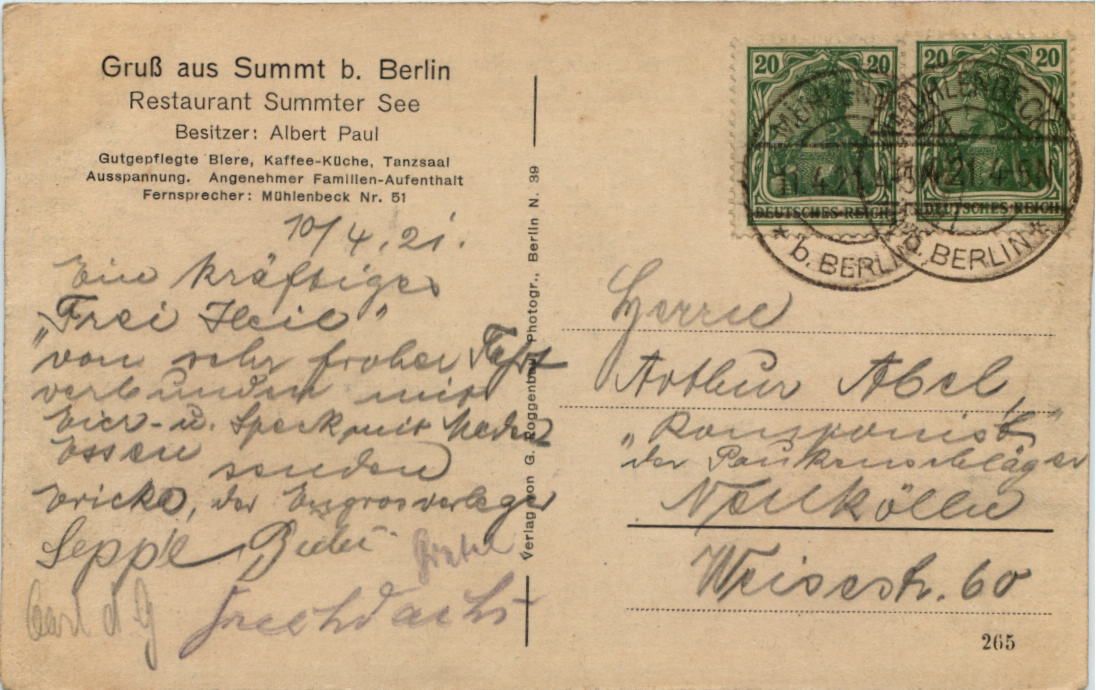 Gruß aus Summt b. Berlin
Restaurant Summter See
Besitzer: Albert Paul
Gutgepflegte Biere, Kaffee-Küche, Tanzsaal
Ausspannung. Angenehmer Familien-Aufenthalt
Fernsprecher: Mühlenbeck Nr. 51
10/4.21.
Ein kräftiges
"Frei Heil"
von sehr froher Fahrt
verbunden mit
Eier- u. Speck mit
Essen senden
Ericke, der Engrosverleger
Seppl,
Gretel
Carl d. G
Frechdachs
Verlag von G. Roggenbau, Photogr., Berlin N. 39
20 20
DEUTSCHES REICH
20 20
DEUTSCHES REICH
MÜHLENBECK
11.4.21.4-5N
* b. BERLIN
MÜHLENBECK
4-5N
b. BERLIN *
Herrn
Arthur Abel,
"Komponist"
der Paukenschläger
Neukölln
Weisestr. 60
265